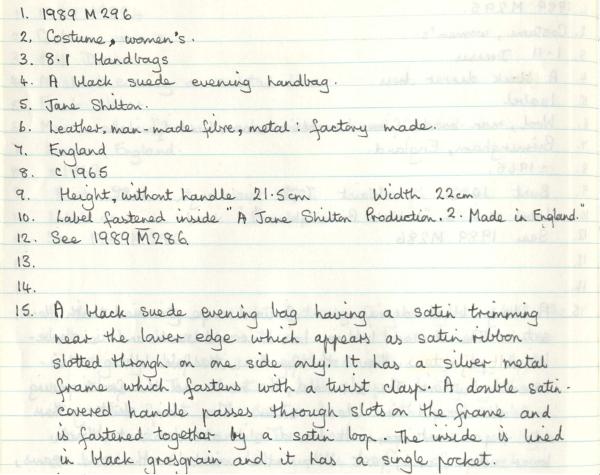 1. 1989 M 296
2. Costume, women's.
3. 8.1 Handbags
4. A black suede evening handbag.
5. Jane Shilton.
6. Leather, man-made fibre, metal: factory made.
7. England
8. c 1965
9. Height, without handle 21.5cm Width 22cm
10. Label fastened inside "A Jane Shilton Production. 2. Made in England."
12. See 1989 M286
13.
14.
15. A black suede evening bag having a satin trimming
near the lower edge which appears as satin ribbon
slotted through on one side only. It has a silver metal
frame which fastens with a twist clasp. A double satin-
covered handle passes through slots on the frame and
is fastened together by a satin loop. The inside is lined
in black grosgrain and it has a single pocket.